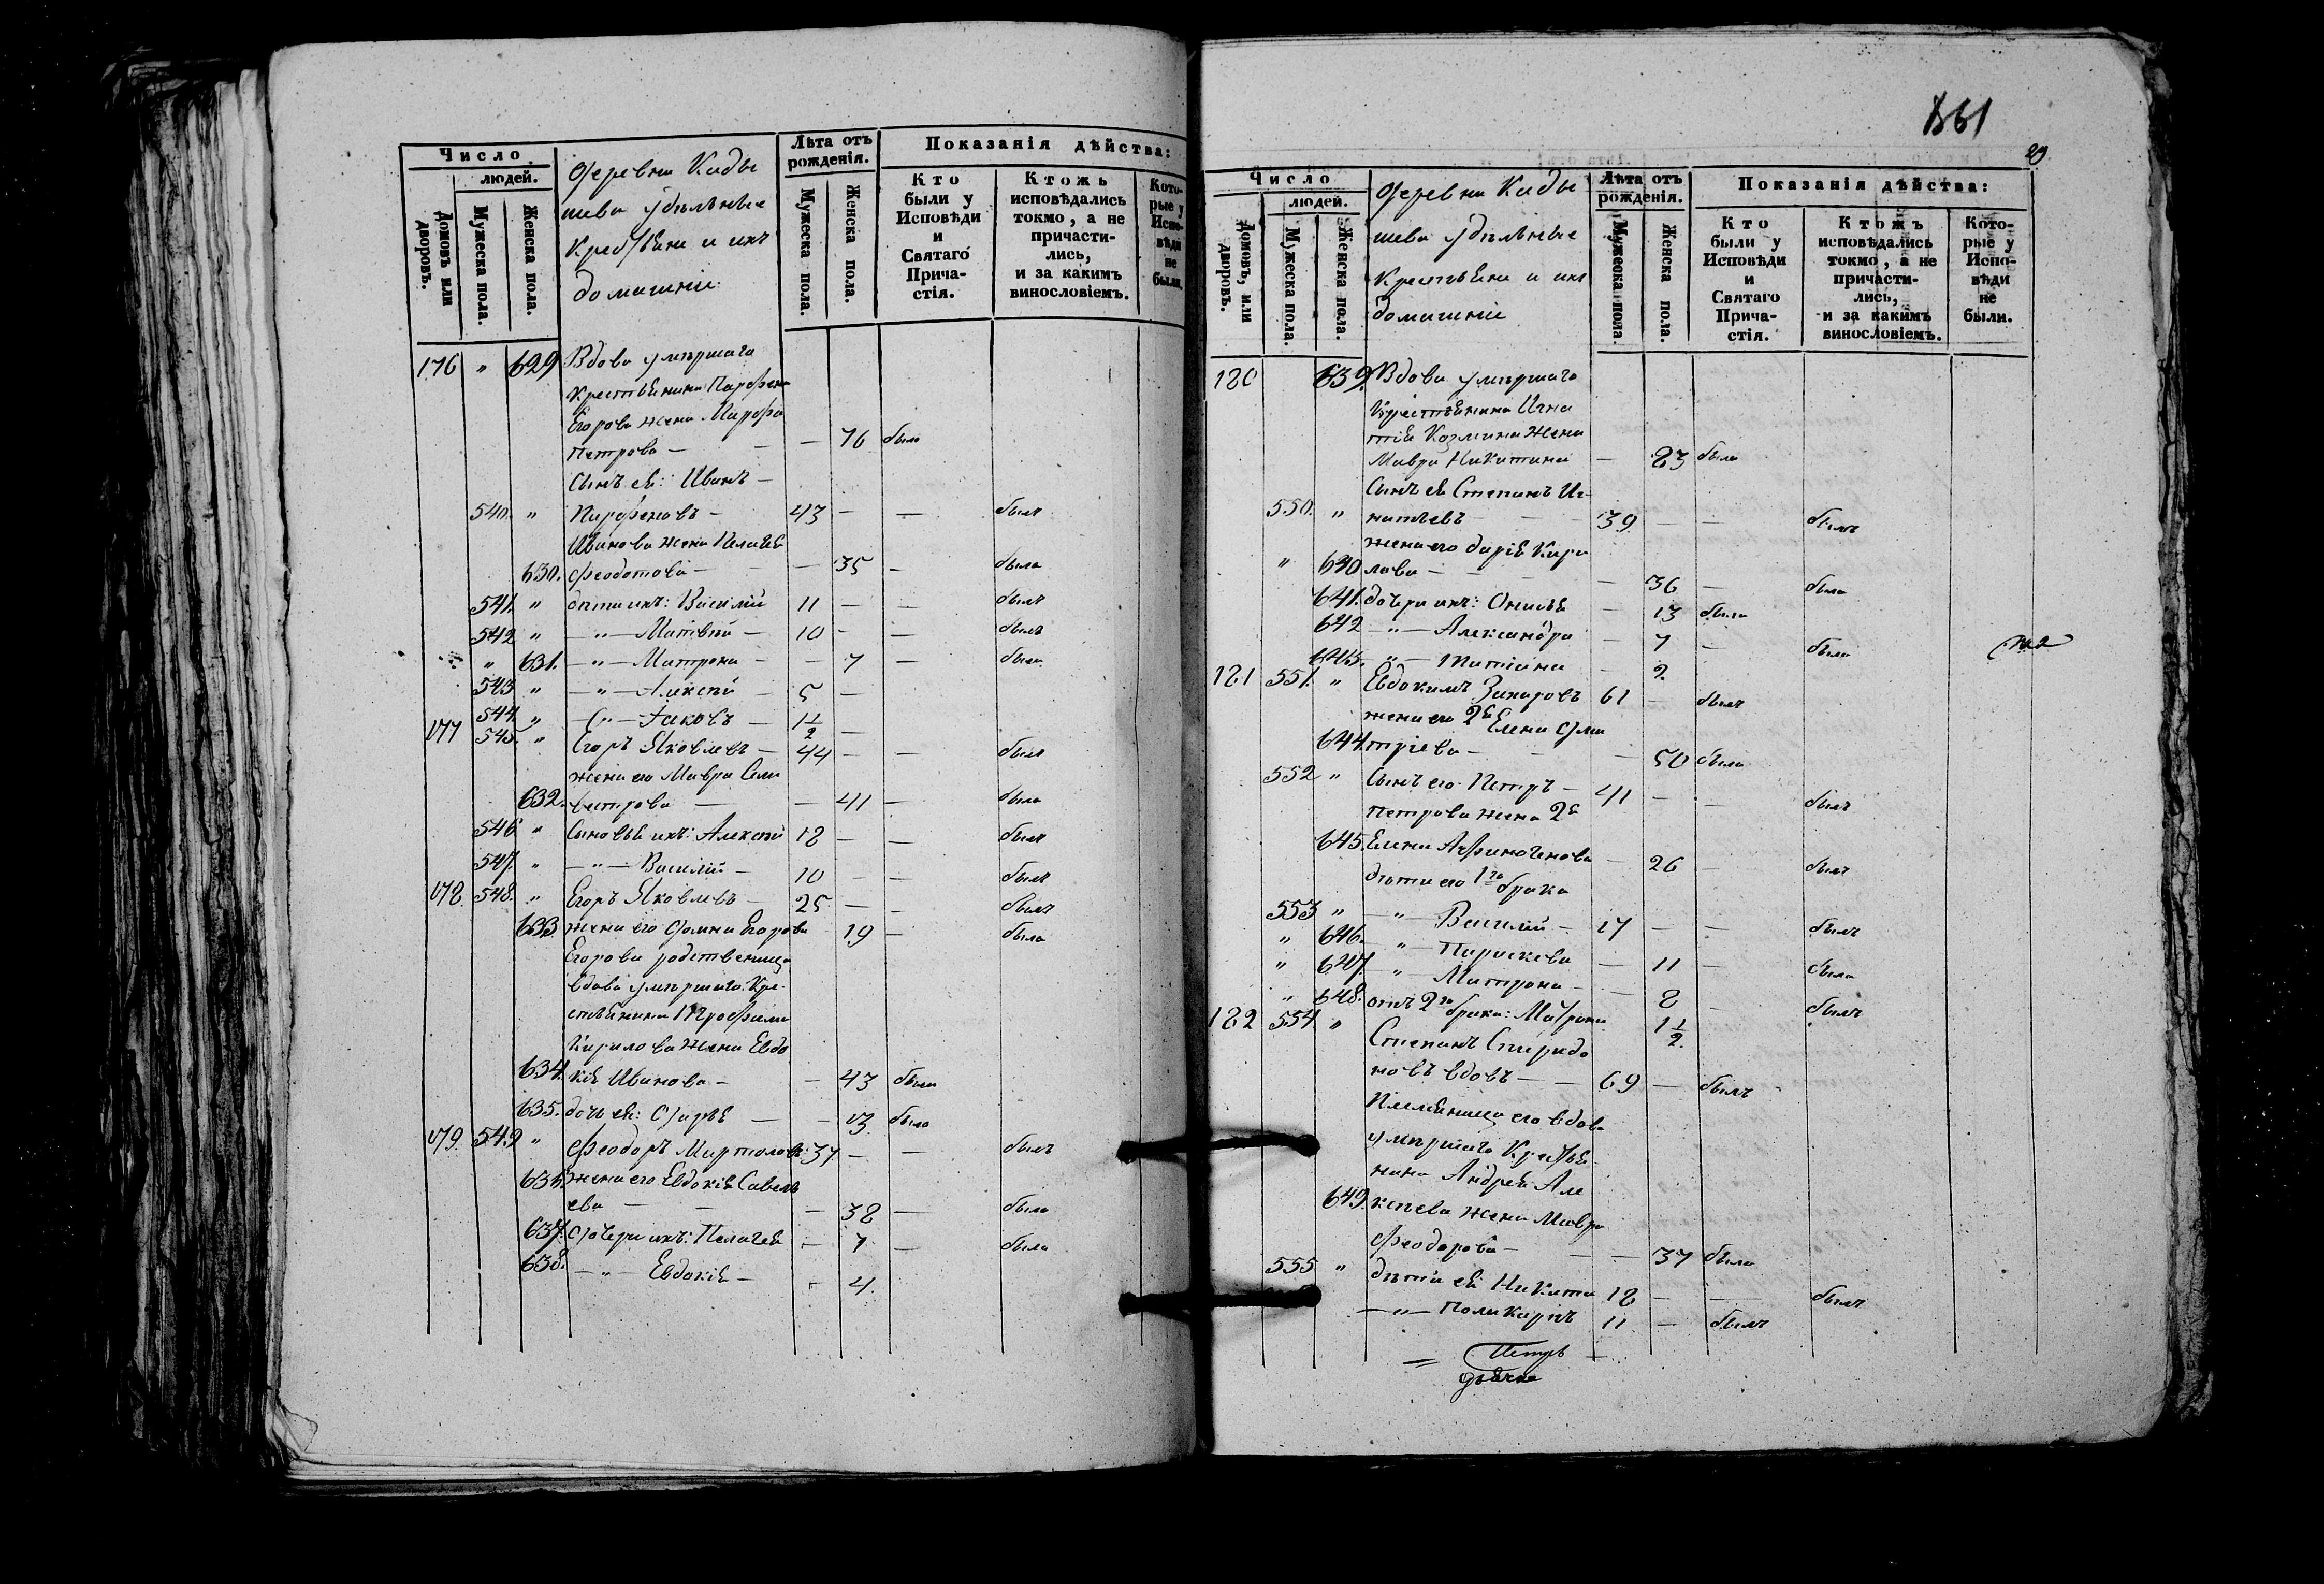 Число
людей.
Домовъ или дворовъ.
Мужеска пола.
Женска пола.
Деревни Кады
шева удѣльные
Крестьяне и ихъ
домашніе
Лѣта отъ
рожденія.
Мужеска пола.
Женска пола.
Показанія дѣйства:
Кто
были у
Исповѣди
и
Святаго
Прича-
стія.
Ктожъ
исповѣдались
токмо, а не
причасти-
лись,
и за какимъ
винословіемъ.
Кото-
рые у
Испо-
вѣди
не
были.
176 " 629 Вдова умершаго
крестьянина Парфена
Егорова жена Марфа
Петрова — — 76 была
Сынъ ея: Иванъ —
540. " Парфеновъ — 43 — — былъ
Иванова жена Пелагея
630. Феодотова — — 35 — была
541. " дѣти ихъ: Василій 11 — — былъ
542 " — " — Матвѣй — 10 — — былъ
" 631. — " — Матрона — — 7 — была
543 " — " — Алексѣй — 5 —
544. " — " — Іаковъ — 1 1/2 —
177 545. " Егоръ Яковлевъ — 44 — — былъ
жена его Мавра Сели
632. вестрова — — 41 — была
546 " Сыновья ихъ: Алексѣй 18 — — былъ
547. " — " — Василій — 10 — — былъ
178 548. " Егоръ Яковлевъ — 25 — — былъ
633. жена его Домна Егорова 19 — была
Егорова родственница
вдова умершаго Кре-
стьянина Трофима
Кирилова жена Евдо
634. кія Иванова — — 43 была
635. дочь ея: Дарья — — 13 была
179. 549 " Феодоръ Мартоловъ 37 — — былъ
636. жена его Евдокія Савель
ева — — — 38 — была
637. Дочери ихъ: Пелагея — 7 — была
638. — " — Евдокія — — 4.
29
Число
людей.
Домовъ, или дворовъ.
Мужеска пола.
Женска пола.
Деревни Кады
шева удѣльные
Крестьяне и ихъ
домашніе
Лѣта отъ
рожденія.
Мужеска пола.
Женска пола.
Показанія дѣйства:
Кто
были у
Исповѣди
и
Святаго
Прича-
стія.
Ктожъ
исповѣдались
токмо, а не
причасти-
лись,
и за какимъ
винословіемъ.
Кото-
рые у
Испо-
вѣди
не
были.
180 639. Вдова умершаго
Крестьянина Игна
тія Козмина жена
Мавра Никитина — 83 была
Сынъ ея Степанъ Иг-
550. " натьевъ — — 39 — — былъ
жена его Дарія Кири
" 640 лова — — — 36 — была
641. дочери ихъ: Онисья — 13 была
642 — " — Александра — 7 — была
643. " — Татіана — 2
181 551. " Евдокимъ Захаровъ 61 — былъ
жена его 2я Елена Дми
644. тріева — — — 50 была
552 " Сынъ его Петръ — 41 — — былъ
Петрова жена 2я
645. Елена Афиногенова — 26 — былъ
дѣти его 1го брака
553 " — " — Василій — 17 — — былъ
" 646. — " — Параскева — 11 — была
" 647. — " — Матрона — — 8 — былъ
" 648. отъ 2го брака: Матрона 1 1/2.
182 554 " Степанъ Спиридо
новъ вдовъ — — 69 — былъ
Племянница его вдова
умершаго Крестья-
нина Андрея Але
649. ксѣева жена Мавра
Феодорова — — — 37 была
555 " дѣти ея Никита 18 — — былъ
— " — Поликарпъ 11 — былъ